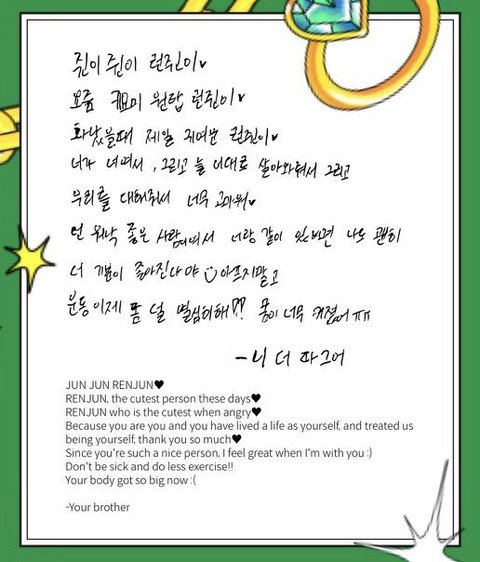 쥔이 쥔이 런쥔이♥
요즘 귀요미 원탑 런쥔이♥
화났을때 제일 귀여운 런쥔이♥
너가 너여서, 그리고 늘 너대로 살아와줘서 그리고
우리를 대해주서 너무 고마워♥
넌 워낙 좋은 사람이여서 너랑 같이 있으면 나도 괜히
더 기분이 좋아진다야 아프지말고
운동 이제 좀 덜 열심히해!! 몸이 너무 커졌어 ㅠㅠ
JUN JUN RENJUN♥
RENJUN, the cutest person these days♥
RENJUN who is the cutest when angry♥
Because you are you and you have lived a life as yourself, and treated us
being yourself, thank you so much♥
Since you're such a nice person, I feel great when I'm with you :)
Don't be sick and do less exercise!!
Your body got so big now :(
-Your brother